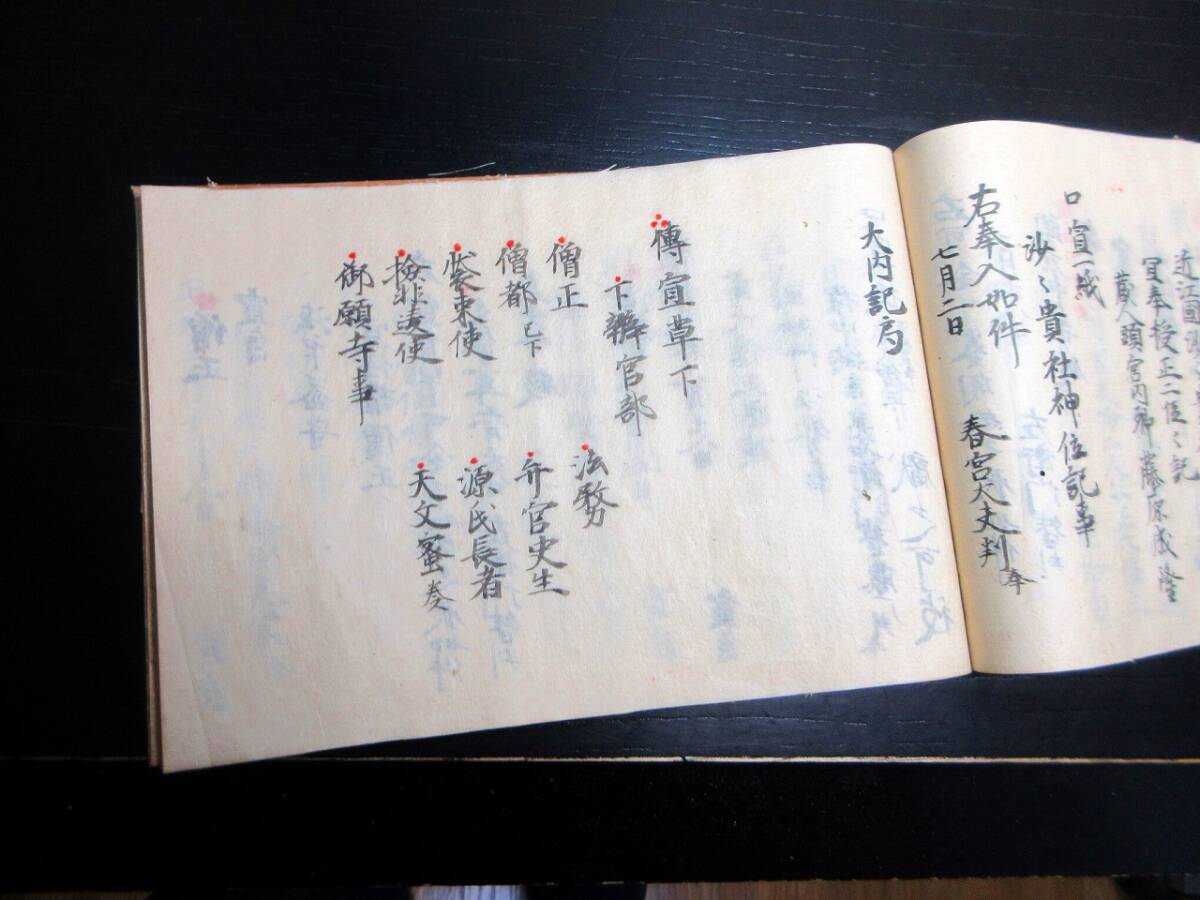 冝奉授正二位之記
蔵人頭宮内卿藤原成隆
口宣一紙
沙之貴社神位記事
右奉入如件
七月二日 春宮大夫判奉
大内記局
傳宣草下
下辨官部
僧正 法務
僧都已下 弁官史生
装束使 源氏長者
檢非違使 天文蜜奏
御願寺事